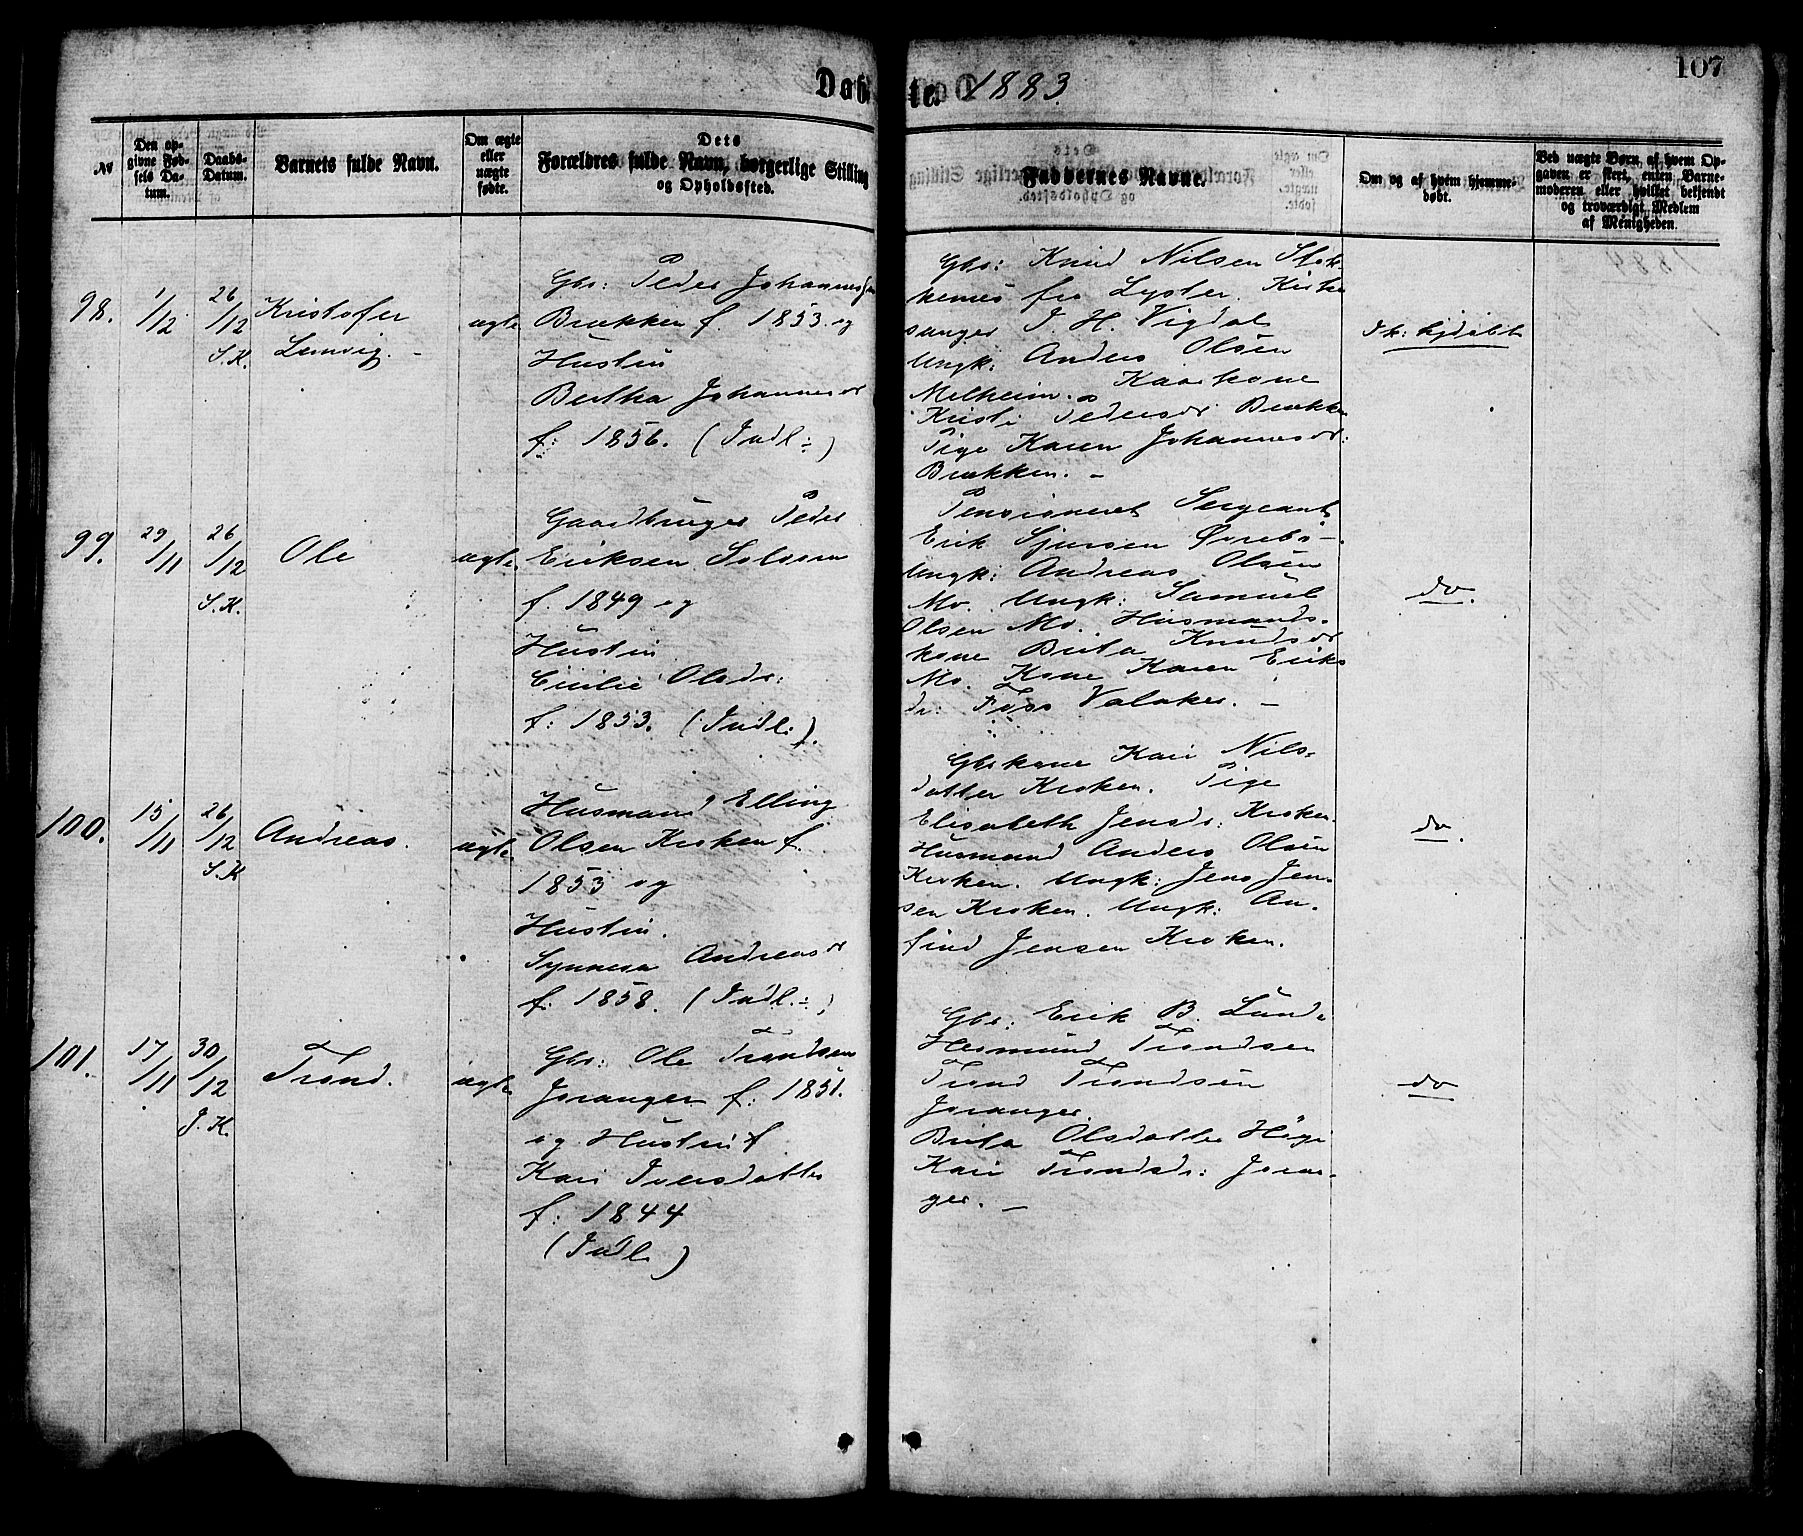 Døbte. 1883.
107
№
Den opgivne Fødsels Datum.
Daabs-Datum.
Barnets fulde Navn.
Om ægte eller uægte fødte.
Dets Forældres fulde Navn, borgerlige Stilling og Opholdssted.
Faddernes Navne.
Om og af hvem hjemmedøbt.
Ved uægte Børn, af hvem Opgaven er skeet, enten Barnemoderen eller hvilket bekjendt og troværdigt Medlem af Menigheden.
98.
1/12
26/12
S.K.
Kristofer
Lemvig. -
ægte
Gbr: Peder Johannessen
Brækken f. 1853. og
Hustru
Bertha Johannesdr
f: 1856. (Indl:)
Gbr: Knud Nilsen Stok-
kenes fra Lyster. Kirke
sanger J. H. Vigdal
Ungk: Anders Olsen
Melheim. Kaarkone
Kristi Pedersdr Brække
Pige Karen Johannesdr:
Brækken. -
Ik: hjdøbt
99.
29/11
26/12
S.K.
Ole
ægte
Gaardbruger Peder
Eriksen Solsva
f. 1849 og
Hustru
Cicilie Olsdr:
f: 1853. (Indl:).
Pensioneret Sergeant
Erik Sjursen Ørebø-.
Ungk: Andreas Olsen
Mo. Ungk: Samuel
Olsen Mo. Husmands-
kone Brita Knudsdr
Mo. Kone Karen Eriks
dr: Foss Valaker. -
do.
100.
15/11
26/12
S.K
Andreas.
ægte.
Husmand Elling
Olsen Kroken f.
1853 og
Hustru.
Synneva Andreasdr
f. 1858. (Indl:)
Gbrkone Kari Nils-
datter Kroken. Pige
Elisabeth Jensdr: Kroken.
Husmand Anders Olsen
Kroken. Ungk: Jens Jen-
sen Kroken. Ungk: An-
find Jensen Kroken.
do.
101.
17/11
30/12
J.K.
Trond.
ægte
Gbr: Ole Trondsen
Joranger f: 1851.
og Hustru
Kari Iversdatter
f: 1844
(Indl.)
Gbr: Erik B. Lund-
Hermund Trondsen
Trond Trondsen
Joranger.
Brita Olsdatter Høgi
Kari Trondsdr: Joran-
ger. -
do